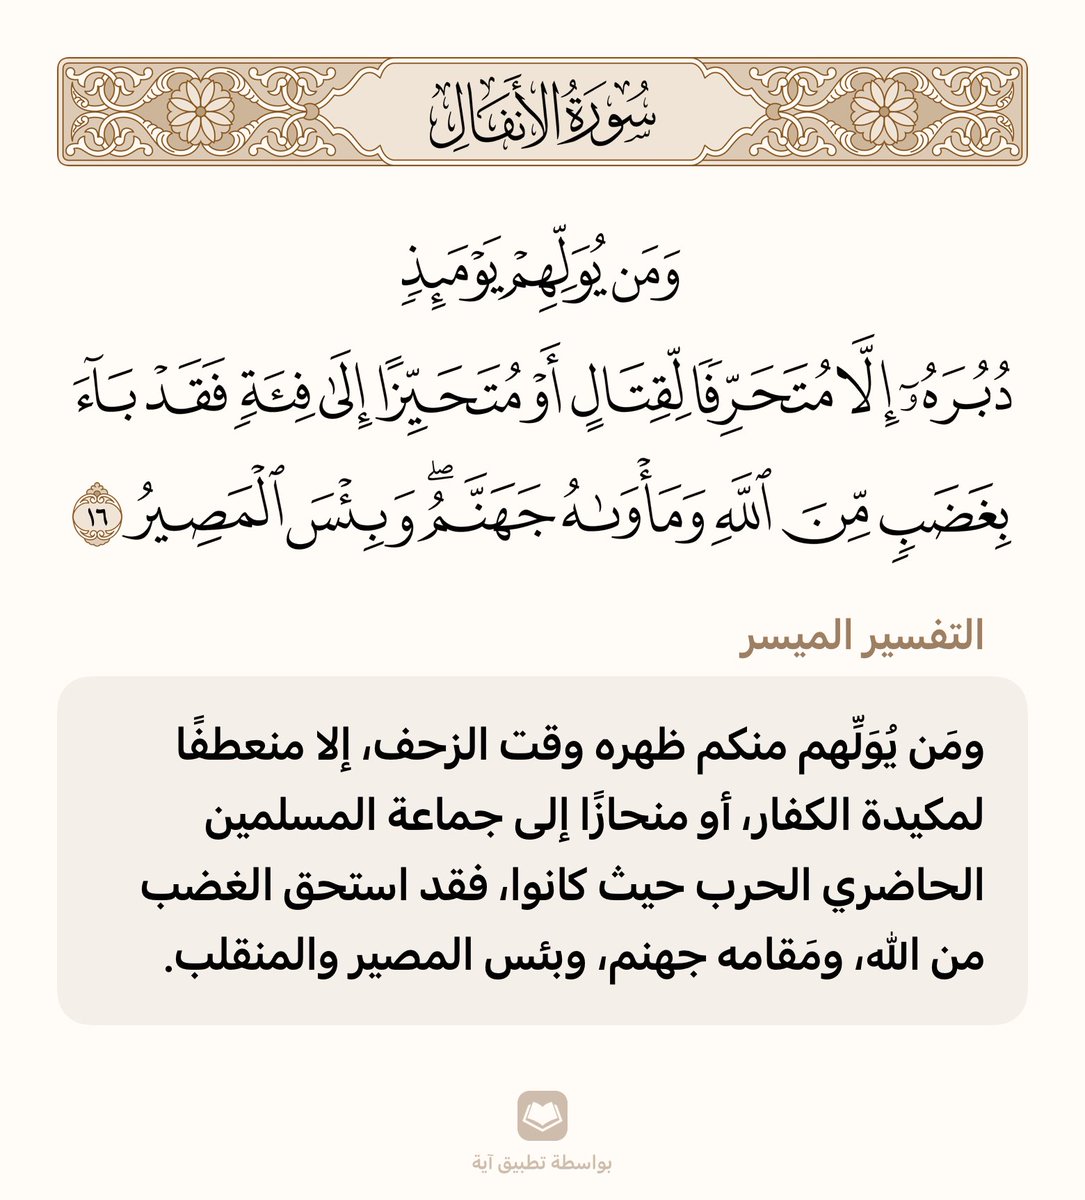 سُورَةُ الأَنفَالِ
وَمَن يُوَلِّهِمۡ يَوۡمَئِذٖ
دُبُرَهُۥٓ إِلَّا مُتَحَرِّفٗا لِّقِتَالٍ أَوۡ مُتَحَيِّزًا إِلَىٰ فِئَةٖ فَقَدۡ بَآءَ
بِغَضَبٖ مِّنَ ٱللَّهِ وَمَأۡوَىٰهُ جَهَنَّمُۖ وَبِئۡسَ ٱلۡمَصِيرُ ١٦
التفسير الميسر
ومَن يُوَلِّهم منكم ظهره وقت الزحف، إلا منعطفًا
لمكيدة الكفار، أو منحازًا إلى جماعة المسلمين
الحاضري الحرب حيث كانوا، فقد استحق الغضب
من الله، ومَقامه جهنم، وبئس المصير والمنقلب.
بواسطة تطبيق آية